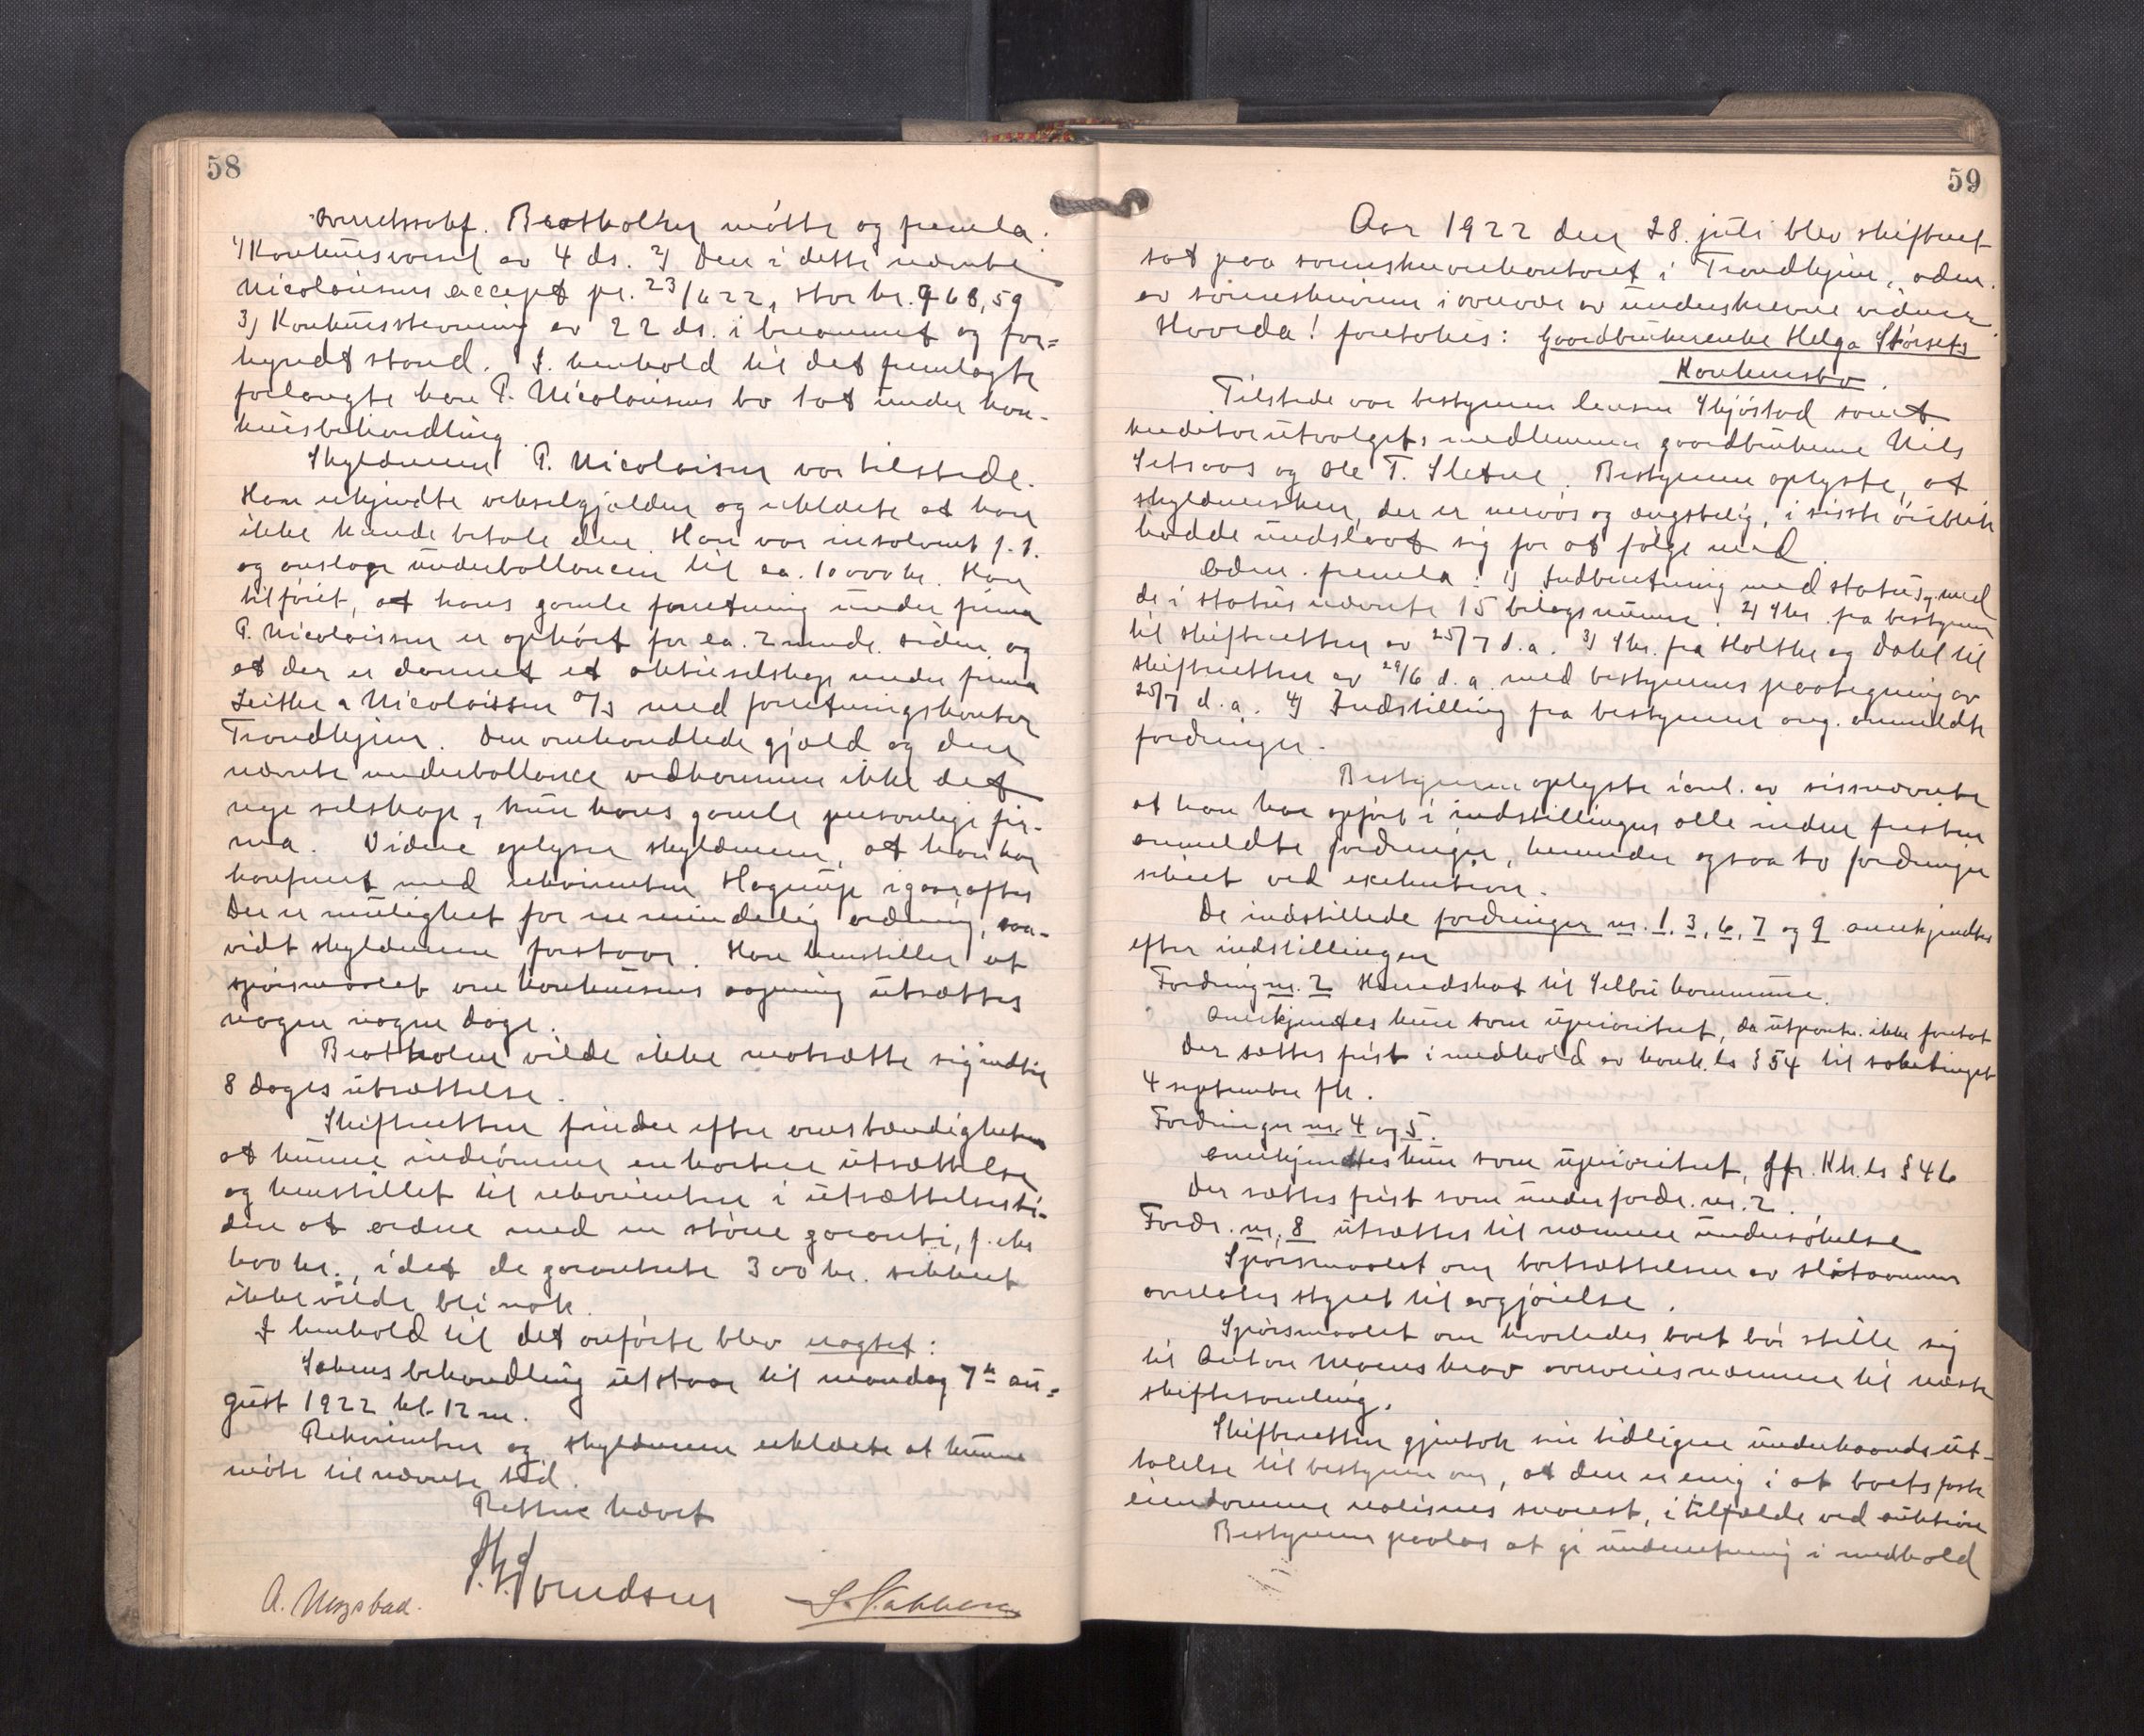 58
Brathollen møtte og fremla:
1) Konkursvarsel av 4 ds. 2) Den i dette nævnte
Nicolaisens accept pr. 23/6 22, stor kr. 968,59
3) Konkursstevning av 22 ds. i brammet og for-
kyndt stand. I henhold til det fremlagte
forlangte han P. Nicolaisens bo tat under kon-
kursbehandling.
Skyldneren P. Nicolaisen var tilstede.
Han erkjendte vekselgjælden og erklærte at han
ikke kunde betale den. Han var insolvent p. t.
og anslaar underballancen til ca. 10000 kr. Han
tilføiet, at hans gamle forretning under firma
P. Nicolaissen er ophørt for ca. 2 mndr. siden og
at der er dannet et aktieselskap under firma
Leithe & Nicolaissen A/S med forretningskontor
Trondhjem. Den omhandlede gjæld og den
nævnte underballance vedkommer ikke det
nye selskap, kun hans gamle personlige fir-
ma. Videre oplyser skyldneren, at han har
konferert med rekvirenten Hagerup igaaraftes
Der er mulighet for en mindelig ordning, saa-
vidt skyldneren forstaar. Han henstiller at
spørsmaalet om konkursens aapning utsættes
nogen nogen dage.
Brathollen vilde ikke motsætte sig indtil
8 dages utsættelse.
Skifteretten finder efter omstændigheten
at kunne indrømme en kortere utsættelse
og henstillet til rekvirenten i utsættelsesti-
den at ordne med en større garanti, f. eks
600 kr., idet de garanterte 300 kr. sikkert
ikke vilde bli nok.
I henhold til det anførte blev vagtet:
Sakens behandling utstaar til mandag 7de au-
gust 1922 kl. 12 m.
Rekvirenten og skyldneren erklærte at kunne
møte til nævnte tid.
Retten hævet
A. Mogstad.
59
Aar 1922 den 28. juli blev skifteret
sat paa sorenskriverkontoret i Trondhjem, adm.
av sorenskriveren i overvær av underskrevne vidner.
Hvorda! foretokes: Gaardbrukerenke Helga Størsets
Konkursbo.
Tilstede var bestyreren lensm Skjøstad samt
kreditorutvalgets medlemmer gaardbrukerne Nils
Setsaas og Ole T. Sletne. Bestyreren oplyste, at
skyldnersken, der er nervøs og ængstelig, i siste øieblik
hadde undslaat sig for at følge med.
Adm. fremla: 1) Indberetning med status, med
de i status nævnte 15 bilagsnumre. 2) Skr. fra bestyreren
til skifteretten av 25/7 d.a. 3) Skr. fra Holthe og Dahl til
skifteretten av 29/6 d.a. med bestyrerens paategning av
25/7 d.a. 4) Indstilling fra bestyreren ang. anmeldte
fordringer.
Bestyreren oplyste i anl. av sisnævnte
at han har opført i indstillingen alle inden fristen
anmeldte fordringer, herunder ogsaa to fordringer
sikret ved exekution.
De indstillede fordringer nr. 1, 3, 6, 7 og 9 anerkjendtes
efter indstillingen
Fordring nr. 2 Herredskat til Selbu kommune.
Anerkjendtes kun som uprioritert, da utpantn. ikke foretat
Der sættes frist i medhold av konk. ls § 54 til saketinget
4 september fk.
Fordringer nr. 4 og 5.
Anerkjendtes kun som uprioritert, jfr. Kk. ls § 46
Der sættes frist som under fordr. nr. 2.
Fordr. nr. 8 utsættes til nærmere undersøkelse
Spørsmaalet om fortsættelsen av slaataannen
overlates styret til avgjørelse.
Spørsmaalet om hvorledes boet bør stille sig
til Anton Moens krav oversiesnærmere til næste
skiftesamling.
Skifteretten gjentok sin tidligere underhaandsut-
talelse til bestyreren om, at den er enig i at boets faste
eiendomme realiseres snarest, i tilfælde ved auktion
Bestyreren paalas at gi underretning i medhold